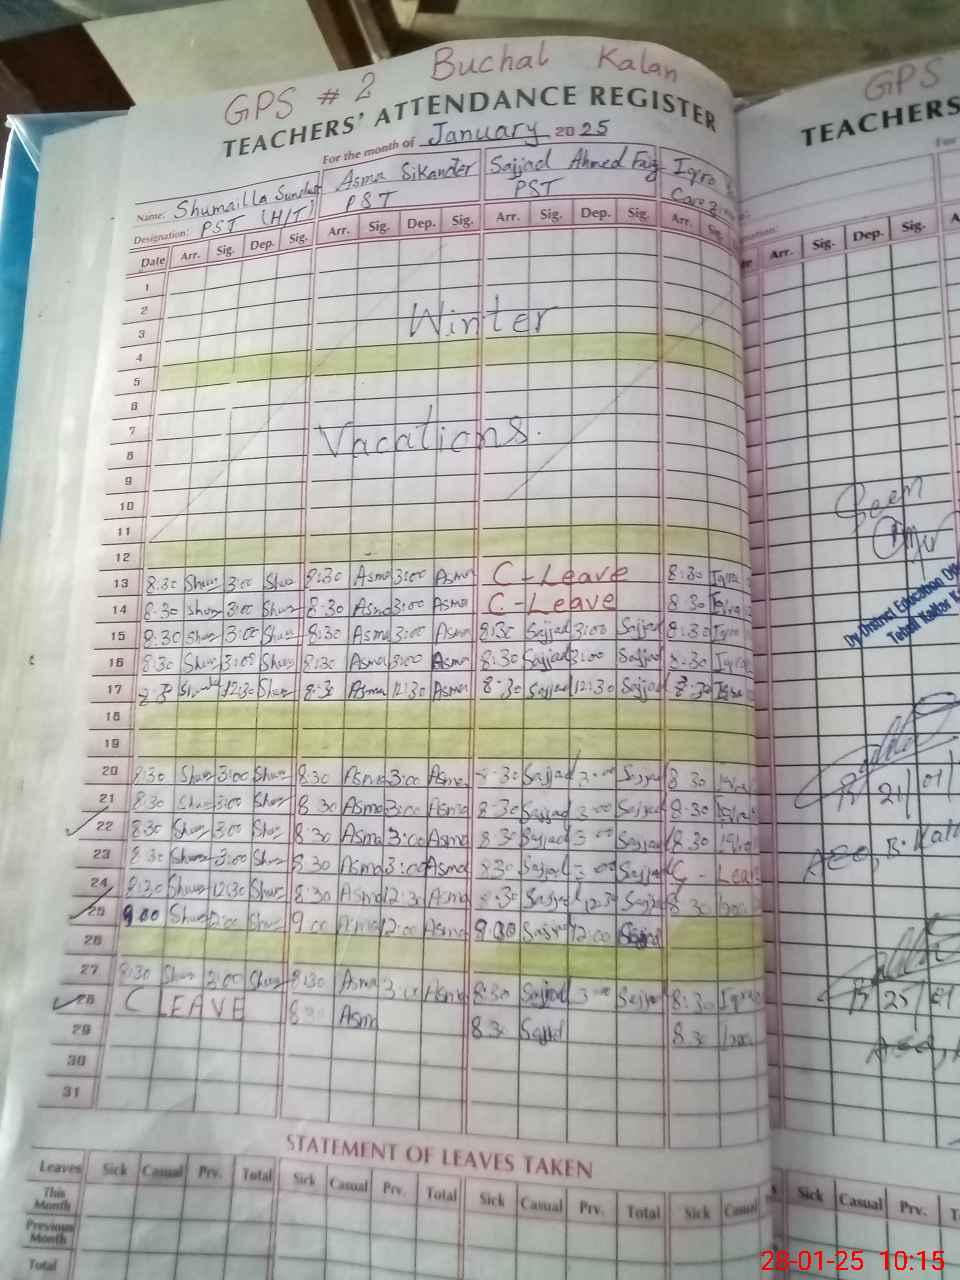 GPS # 2 Buchal Kalan
TEACHERS' ATTENDANCE REGISTER
For the month of January 2025
Name: Shumailla Asma Sikander Sajjad Ahmed Faiz Iqra
Designation: PST (H/T) PST PST
Date Arr. Sig. Dep. Sig. Arr. Sig. Dep. Sig. Arr. Sig. Dep. Sig. Arr. Sig.
1
2
3 Winter
4
5
6
7 Vacations.
8
9
10
11
12
13 8:30 Shum 3:00 Shum 8:30 Asma 3:00 Asma C-Leave 8:30 Iqra
14 8:30 Shum 3:00 Shum 8:30 Asma 3:00 Asma C-Leave 8:30 Iqra
15 8:30 Shum 3:00 Shum 8:30 Asma 3:00 Asma 8:30 Sajjad 3:00 Sajjad 8:30 Iqra
16 8:30 Shum 3:00 Shum 8:30 Asma 3:00 Asma 8:30 Sajjad 3:00 Sajjad 8:30 Iqra
17 8:30 12:30 Shum 8:30 Asma 12:30 Asma 8:30 Sajjad 12:30 Sajjad 8:30 Iqra
18
19
20 8:30 Shum 3:00 Shum 8:30 Asma 3:00 Asma 8:30 Sajjad 3:00 Sajjad 8:30
21 8:30 Shum 3:00 Shum 8:30 Asma 3:00 Asma 8:30 Sajjad 3:00 Sajjad 8:30
22 8:30 Shum 3:00 Shum 8:30 Asma 3:00 Asma 8:30 Sajjad 3:00 Sajjad 8:30
23 8:30 Shum 3:00 Shum 8:30 Asma 3:00 Asma 8:30 Sajjad 3:00 Sajjad C-Leave
24 8:30 Shum 12:30 Shum 8:30 Asma 12:30 Asma 8:30 Sajjad 12:30 Sajjad 8:30
25 9:00 Shum 2:00 Shum 9:00 Asma 2:00 Asma 9:00 Sajjad 12:00 Sajjad
26
27 8:30 Shum 3:00 Shum 8:30 Asma 3:00 Asma 8:30 Sajjad 3:00 Sajjad 8:30 Iqra
28 C LEAVE 8:30 Asma 8:30 Sajjad 8:30
29
30
31
STATEMENT OF LEAVES TAKEN
Leaves Sick Casual Prv. Total Sick Casual Prv. Total Sick Casual Prv. Total Sick Casual
This Month
Previous Month
Total
GPS
TEACHERS
Arr. Sig. Dep. Sig.
Seen
Dy District Education
21/01/
AEO, B. Kalan
25/01
AEO,
Sick Casual Prv.
28-01-25 10:15